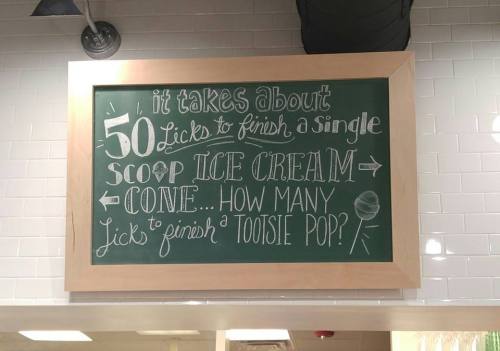 it takes about
50 Licks to finish a single
SCOOP ICE CREAM
CONE... HOW MANY
licks to finish a TOOTSIE POP?